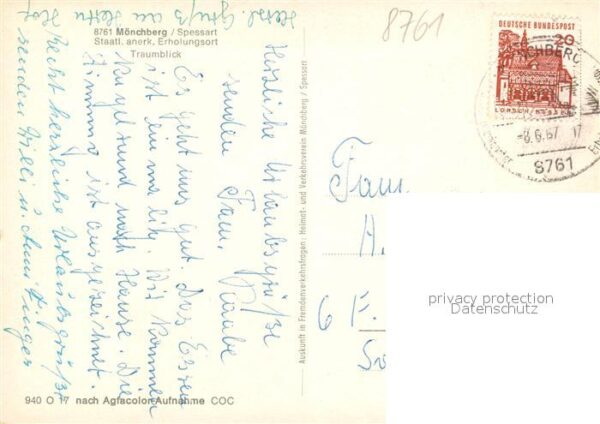 8761 Mönchberg / Spessart
Staatl. anerk. Erholungsort
Traumblick
Herzl. Gruß an Herrn
8761
DEUTSCHE BUNDESPOST
20
LORSCH/HESSEN
MÖNCHBERG
-8.6.67
17
8761
Herzliche Urlaubsgrüße
senden Fam. Taube
Es geht uns gut. Das Essen
ist prima. Wir kommen
kugelrund nach Hause. Die
Zimmer ist ausgezeichnet.
Recht herzliche Urlaubsgrüße
senden Willi u.
Auskunft in Fremdenverkehrsfragen: Heimat- und Verkehrsverein Mönchberg / Spessart
Fam.
H.
6 F.
privacy protection
Datenschutz
940 O 17 nach Agfacolor-Aufnahme COC